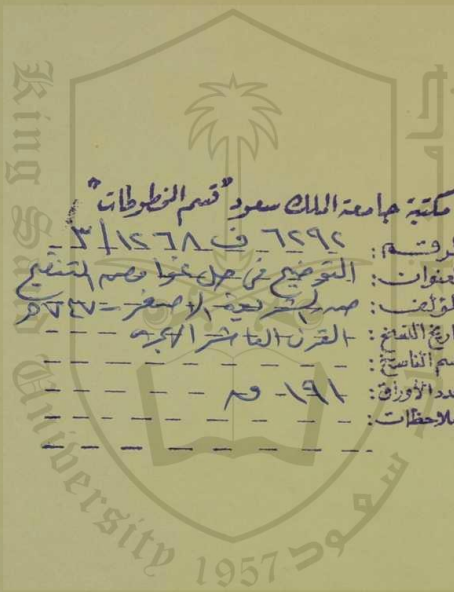 مكتبة جامعة الملك سعود "قسم المخطوطات"
الرقم: ٦٢٩٢ ف ١٢٦٨/٣
العنوان: التوضيح في حل غوامض التنقيح
المؤلف: صدر الشريعة الاصغر - ٧٤٧هـ
تاريخ النسخ: القرن العاشر الهجري
اسم الناسخ:
عدد الأوراق: ١٩١ - ق
ملاحظات:
King Saud University
1957
سعود